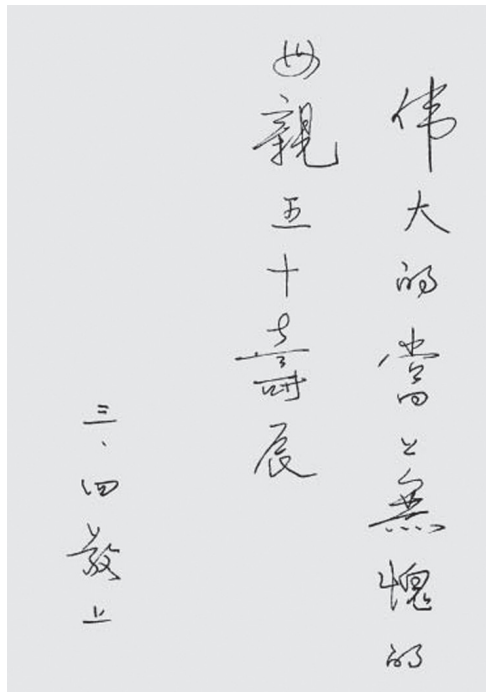 伟大的當之無愧的
母親五十壽辰
三、四敬上